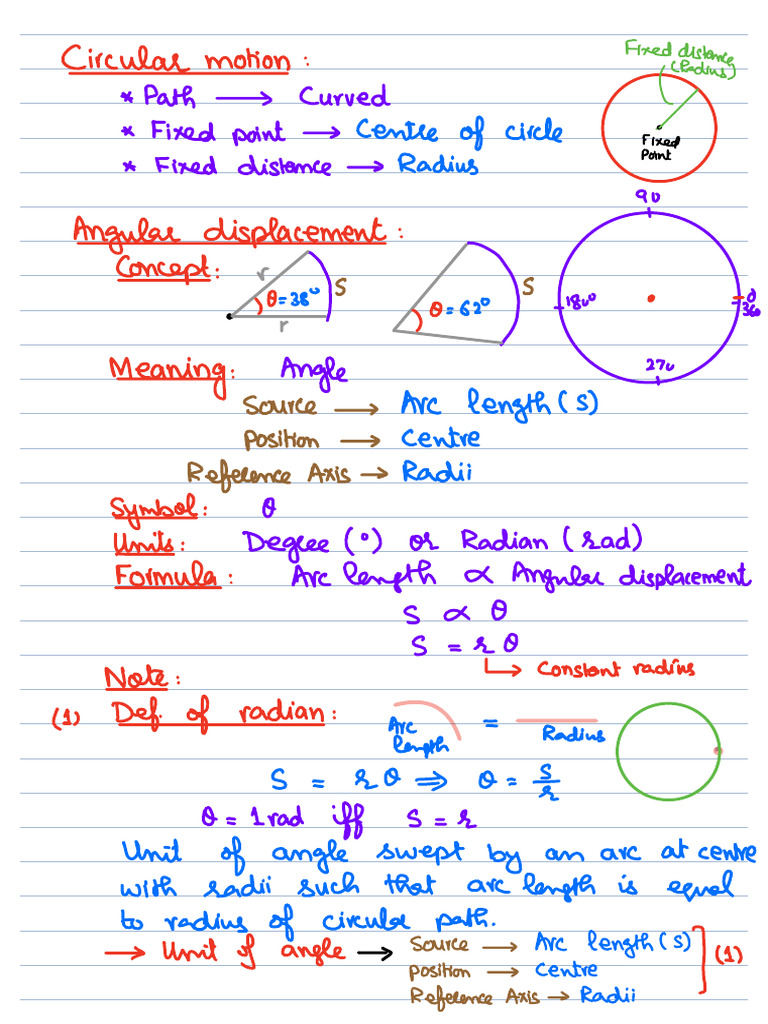 Circular motion :
* Path → Curved
* Fixed point → Centre of circle
* Fixed distance → Radius
Fixed distance
(Radius)
Fixed
Point
Angular displacement :
Concept :
r
θ = 38°
r
S
θ = 62°
S
90
180
0
360
270
Meaning : Angle
Source → Arc length (S)
Position → Centre
Reference Axis → Radii
Symbol : θ
Units : Degree (°) or Radian (rad)
Formula : Arc length ∝ Angular displacement
S ∝ θ
S = r θ
→ Constant radius
Note :
(1) Def. of radian : Arc length = Radius
S = r θ ⇒ θ = S/r
θ = 1 rad iff S = r
Unit of angle swept by an arc at centre
with radii such that arc length is equal
to radius of circular path.
→ Unit of angle → Source → Arc length (S)
Position → Centre
Reference Axis → Radii
(1)